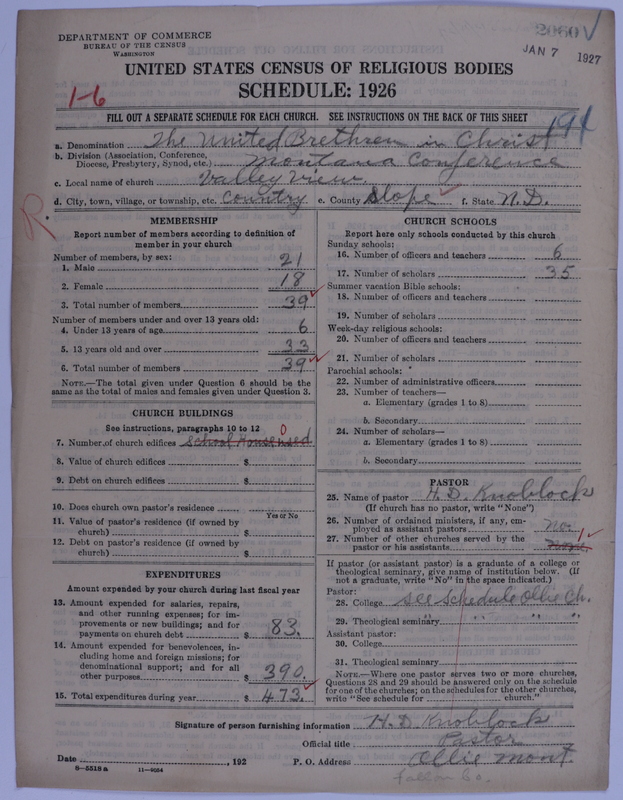 2060 ✓
DEPARTMENT OF COMMERCE
BUREAU OF THE CENSUS
WASHINGTON
JAN 7 1927
UNITED STATES CENSUS OF RELIGIOUS BODIES
SCHEDULE: 1926
1-6
FILL OUT A SEPARATE SCHEDULE FOR EACH CHURCH. SEE INSTRUCTIONS ON THE BACK OF THIS SHEET
194
a. Denomination The United Brethren in Christ
b. Division (Association, Conference, Diocese, Presbytery, Synod, etc.) Montana Conference
c. Local name of church Valley View
d. City, town, village, or township, etc. Country e. County Slope ✓ f. State N.D.
R
MEMBERSHIP
Report number of members according to definition of
member in your church
Number of members, by sex:
1. Male 21
2. Female 18
3. Total number of members 39 ✓
Number of members under and over 13 years old:
4. Under 13 years of age 6
5. 13 years old and over 33
6. Total number of members 39 ✓
NOTE.—The total given under Question 6 should be the
same as the total of males and females given under Question 3.
CHURCH BUILDINGS
See instructions, paragraphs 10 to 12
7. Number of church edifices School House used 0
8. Value of church edifices $
9. Debt on church edifices $
10. Does church own pastor's residence
Yes or No
11. Value of pastor's residence (if owned by
church) $
12. Debt on pastor's residence (if owned by
church) $
EXPENDITURES
Amount expended by your church during last fiscal year
13. Amount expended for salaries, repairs,
and other running expenses; for im-
provements or new buildings; and for
payments on church debt $ 83.
14. Amount expended for benevolences, in-
cluding home and foreign missions; for
denominational support; and for all
other purposes $ 390.
15. Total expenditures during year $ 473. ✓
CHURCH SCHOOLS
Report here only schools conducted by this church
Sunday schools:
16. Number of officers and teachers 6
17. Number of scholars 35
Summer vacation Bible schools:
18. Number of officers and teachers
19. Number of scholars
Week-day religious schools:
20. Number of officers and teachers
21. Number of scholars
Parochial schools:
22. Number of administrative officers
23. Number of teachers—
a. Elementary (grades 1 to 8)
b. Secondary
24. Number of scholars—
a. Elementary (grades 1 to 8)
b. Secondary
PASTOR
25. Name of pastor H. D. Knoblock
(If church has no pastor, write "None")
26. Number of ordained ministers, if any, em-
ployed as assistant pastors no.
27. Number of other churches served by the
pastor or his assistants none 1 ✓
If pastor (or assistant pastor) is a graduate of a college or
theological seminary, give name of institution below. (If
not a graduate, write "No" in the space indicated.)
Pastor:
28. College see Schedule Ollie Ch.
29. Theological seminary " " " "
Assistant pastor:
30. College
31. Theological seminary
NOTE.—Where one pastor serves two or more churches,
Questions 28 and 29 should be answered only on the schedule
for one of the churches; on the schedules for the other churches,
write "See schedule for church."
Signature of person furnishing information H. D. Knoblock
Official title Pastor
Date , 192 P. O. Address Ollie Mont.
8-5518a 11-9054
Fallon Co.